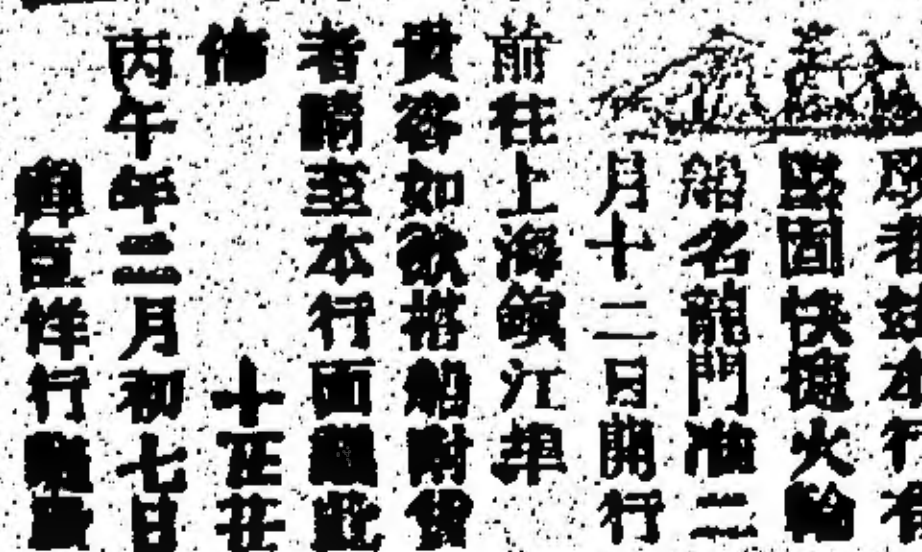 者茲本行有
堅固快捷火輪
船名龍門准二
月十二日開行
前往上海鎮江埠
貴客如欲搭船附貨
者請至本行面議此
佈
十正廿
丙午年二月初七日
禪臣洋行